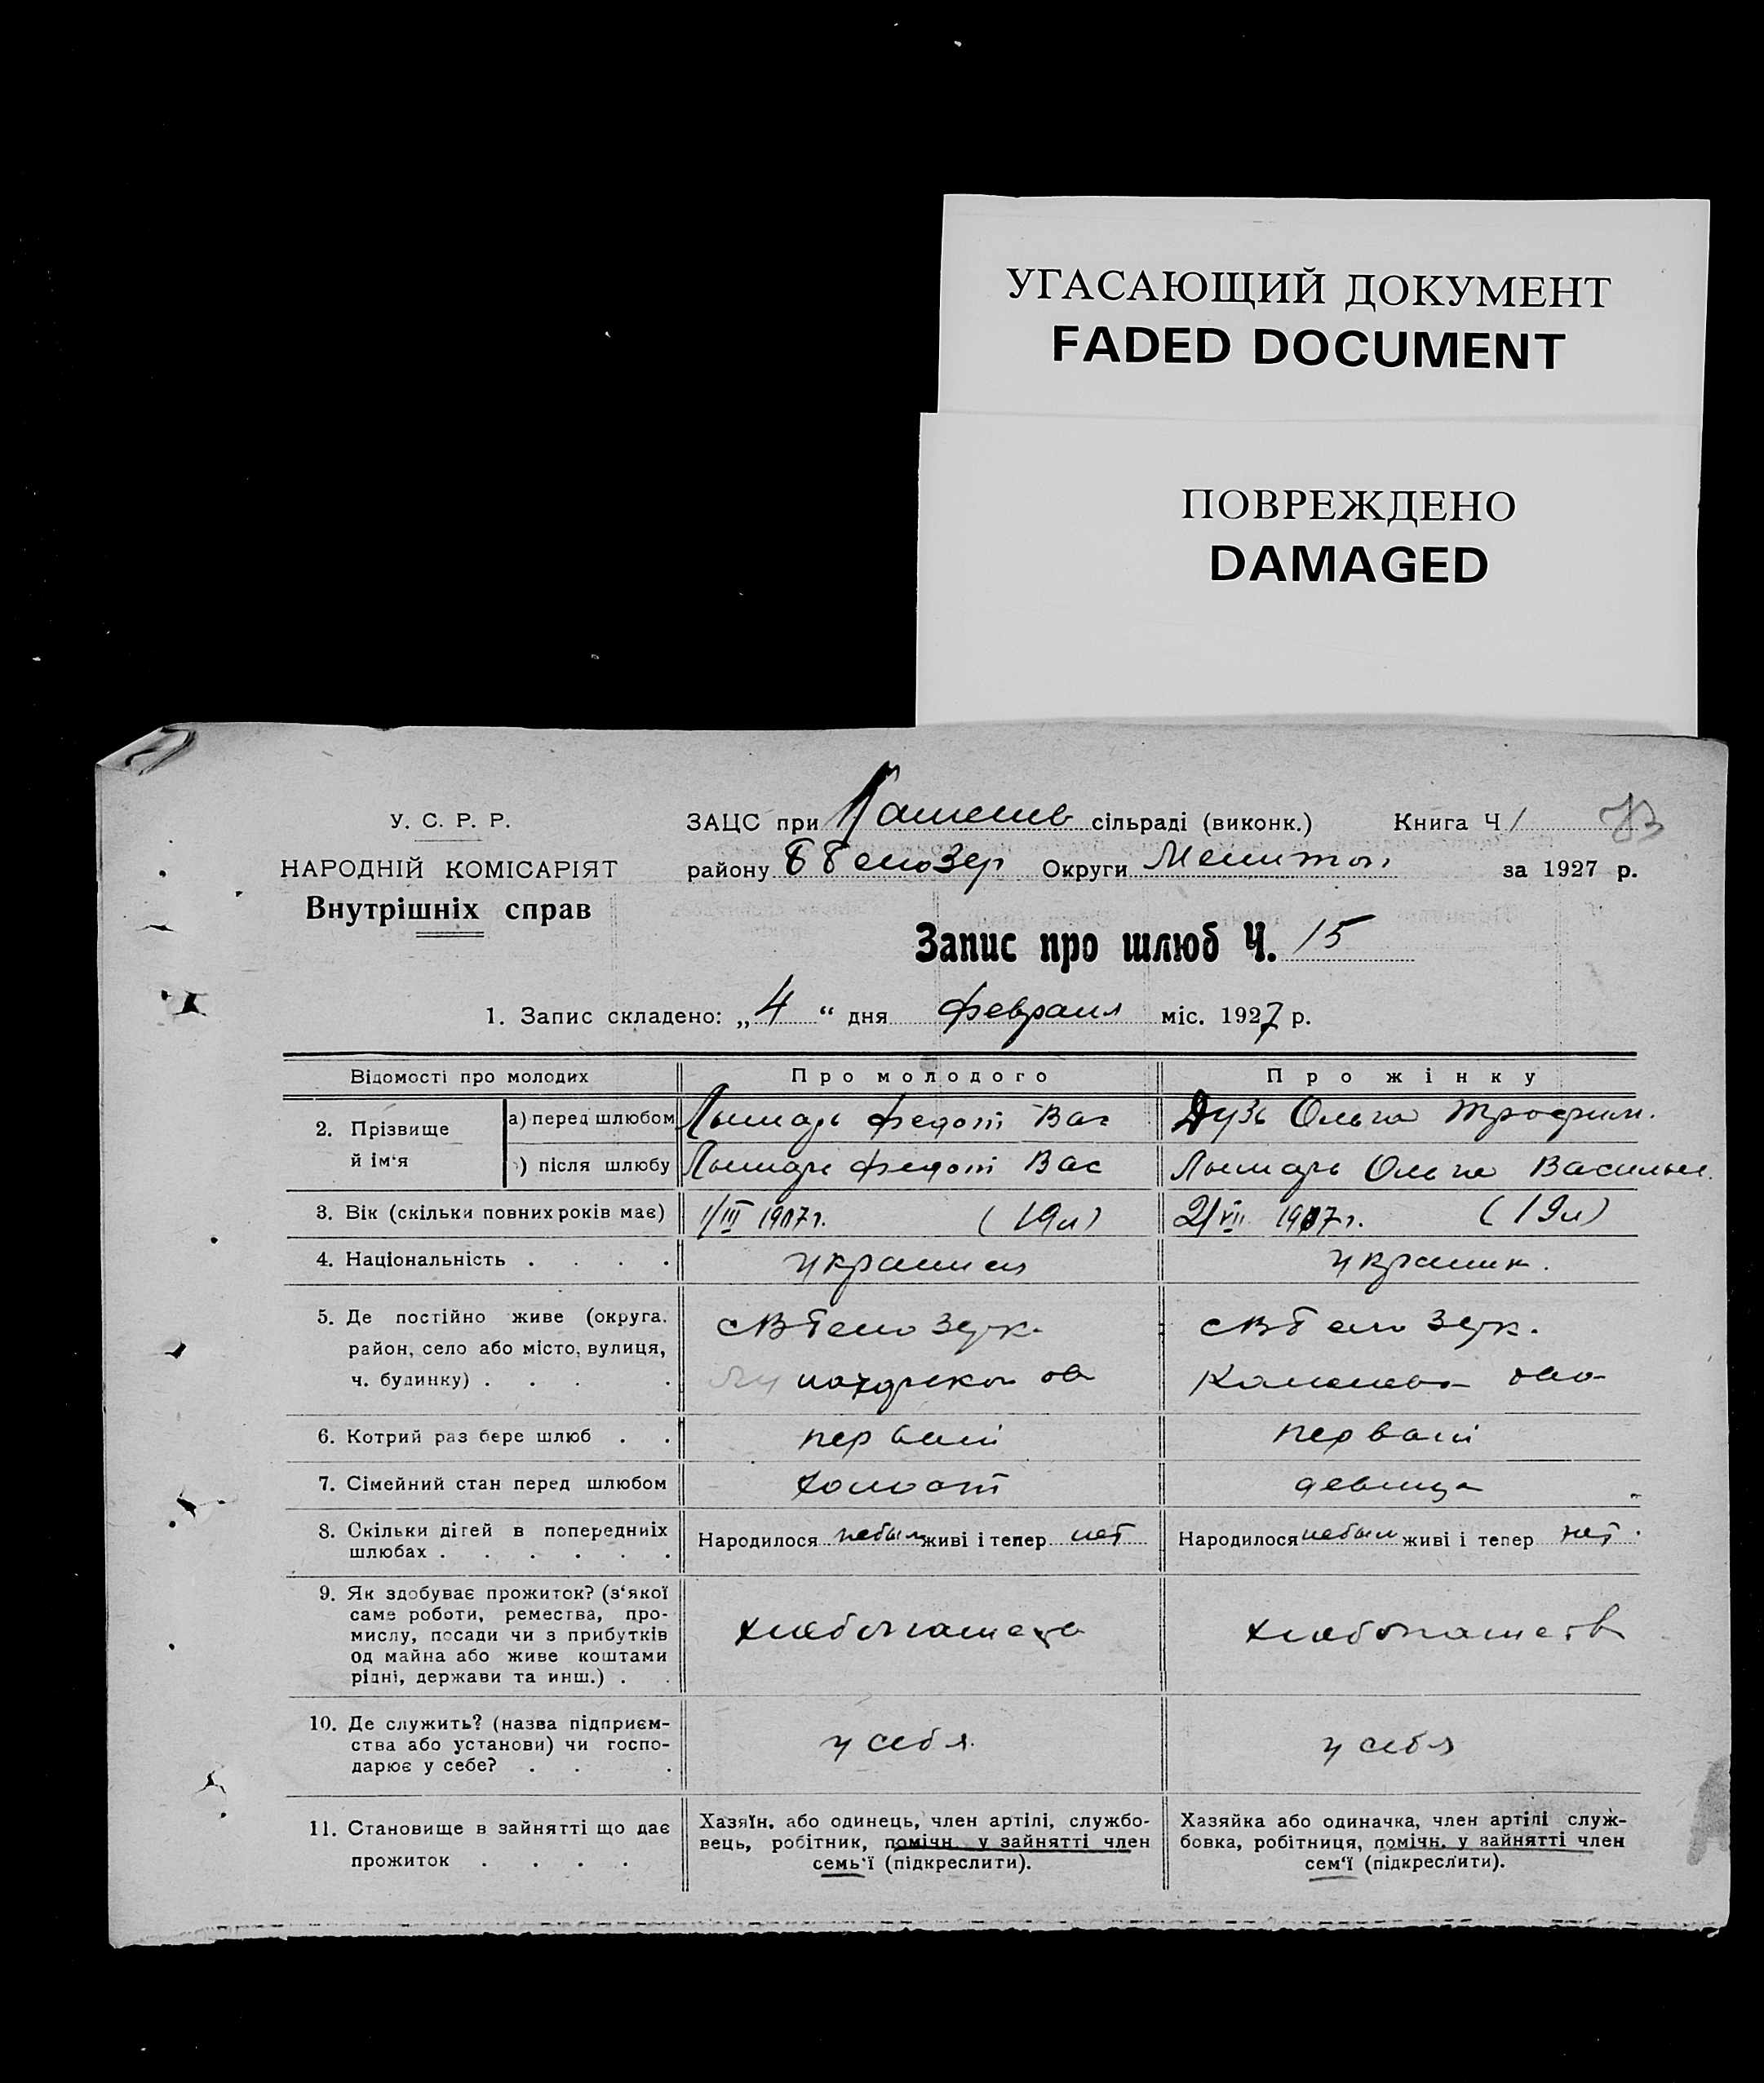 УГАСАЮЩИЙ ДОКУМЕНТ
FADED DOCUMENT
ПОВРЕЖДЕНО
DAMAGED
У. С. Р. Р.
НАРОДНІЙ КОМІСАРІЯТ
Внутрішніх справ
ЗАЦС при сільраді (виконк.) Книга Ч 1
району Округи Мелитоп за 1927 р.
Запис про шлюб Ч. 15
1. Запис складено: „4“ дня февраля міс. 1927 р.
Відомості про молодих Про молодого Про жінку
2. Прізвище й ім'я
а) перед шлюбом Лымарь Федот Вас Дузь Ольга Трофим.
) після шлюбу Лымарь Федот Вас Лымарь Ольга Васильев.
3. Вік (скільки повних років має) 1/III 1907 г. (19 л) 2/VII 1907 г. (19 л)
4. Національність . . . . украинец украинк.
5. Де постійно живе (округа, район, село або місто, вулиця, ч. будинку) . . . .
6. Котрий раз бере шлюб . . первый первый
7. Сімейний стан перед шлюбом холост девица
8. Скільки дітей в попередніїх шлюбах . . . . . . Народилося небыл живі і тепер нет Народилося небыл живі і тепер нет.
9. Як здобуває прожиток? (з'якої
саме роботи, ремества, про-
мислу, посади чи з прибутків
од майна або живе коштами
рідні, держави та инш.) . .
хлебопашество хлебопашеств
10. Де служить? (назва підприєм-
ства або установи) чи госпо-
дарює у себе? . . .
у себя. у себя
11. Становище в зайнятті що дає
прожиток . . . .
Хазяїн, або одинець, член артілі, службо-
вець, робітник, помічн. у зайнятті член
семь'ї (підкреслити).
Хазяйка або одиначка, член артілі служ-
бовка, робітниця, помічн. у зайнятті член
сем'ї (підкреслити).